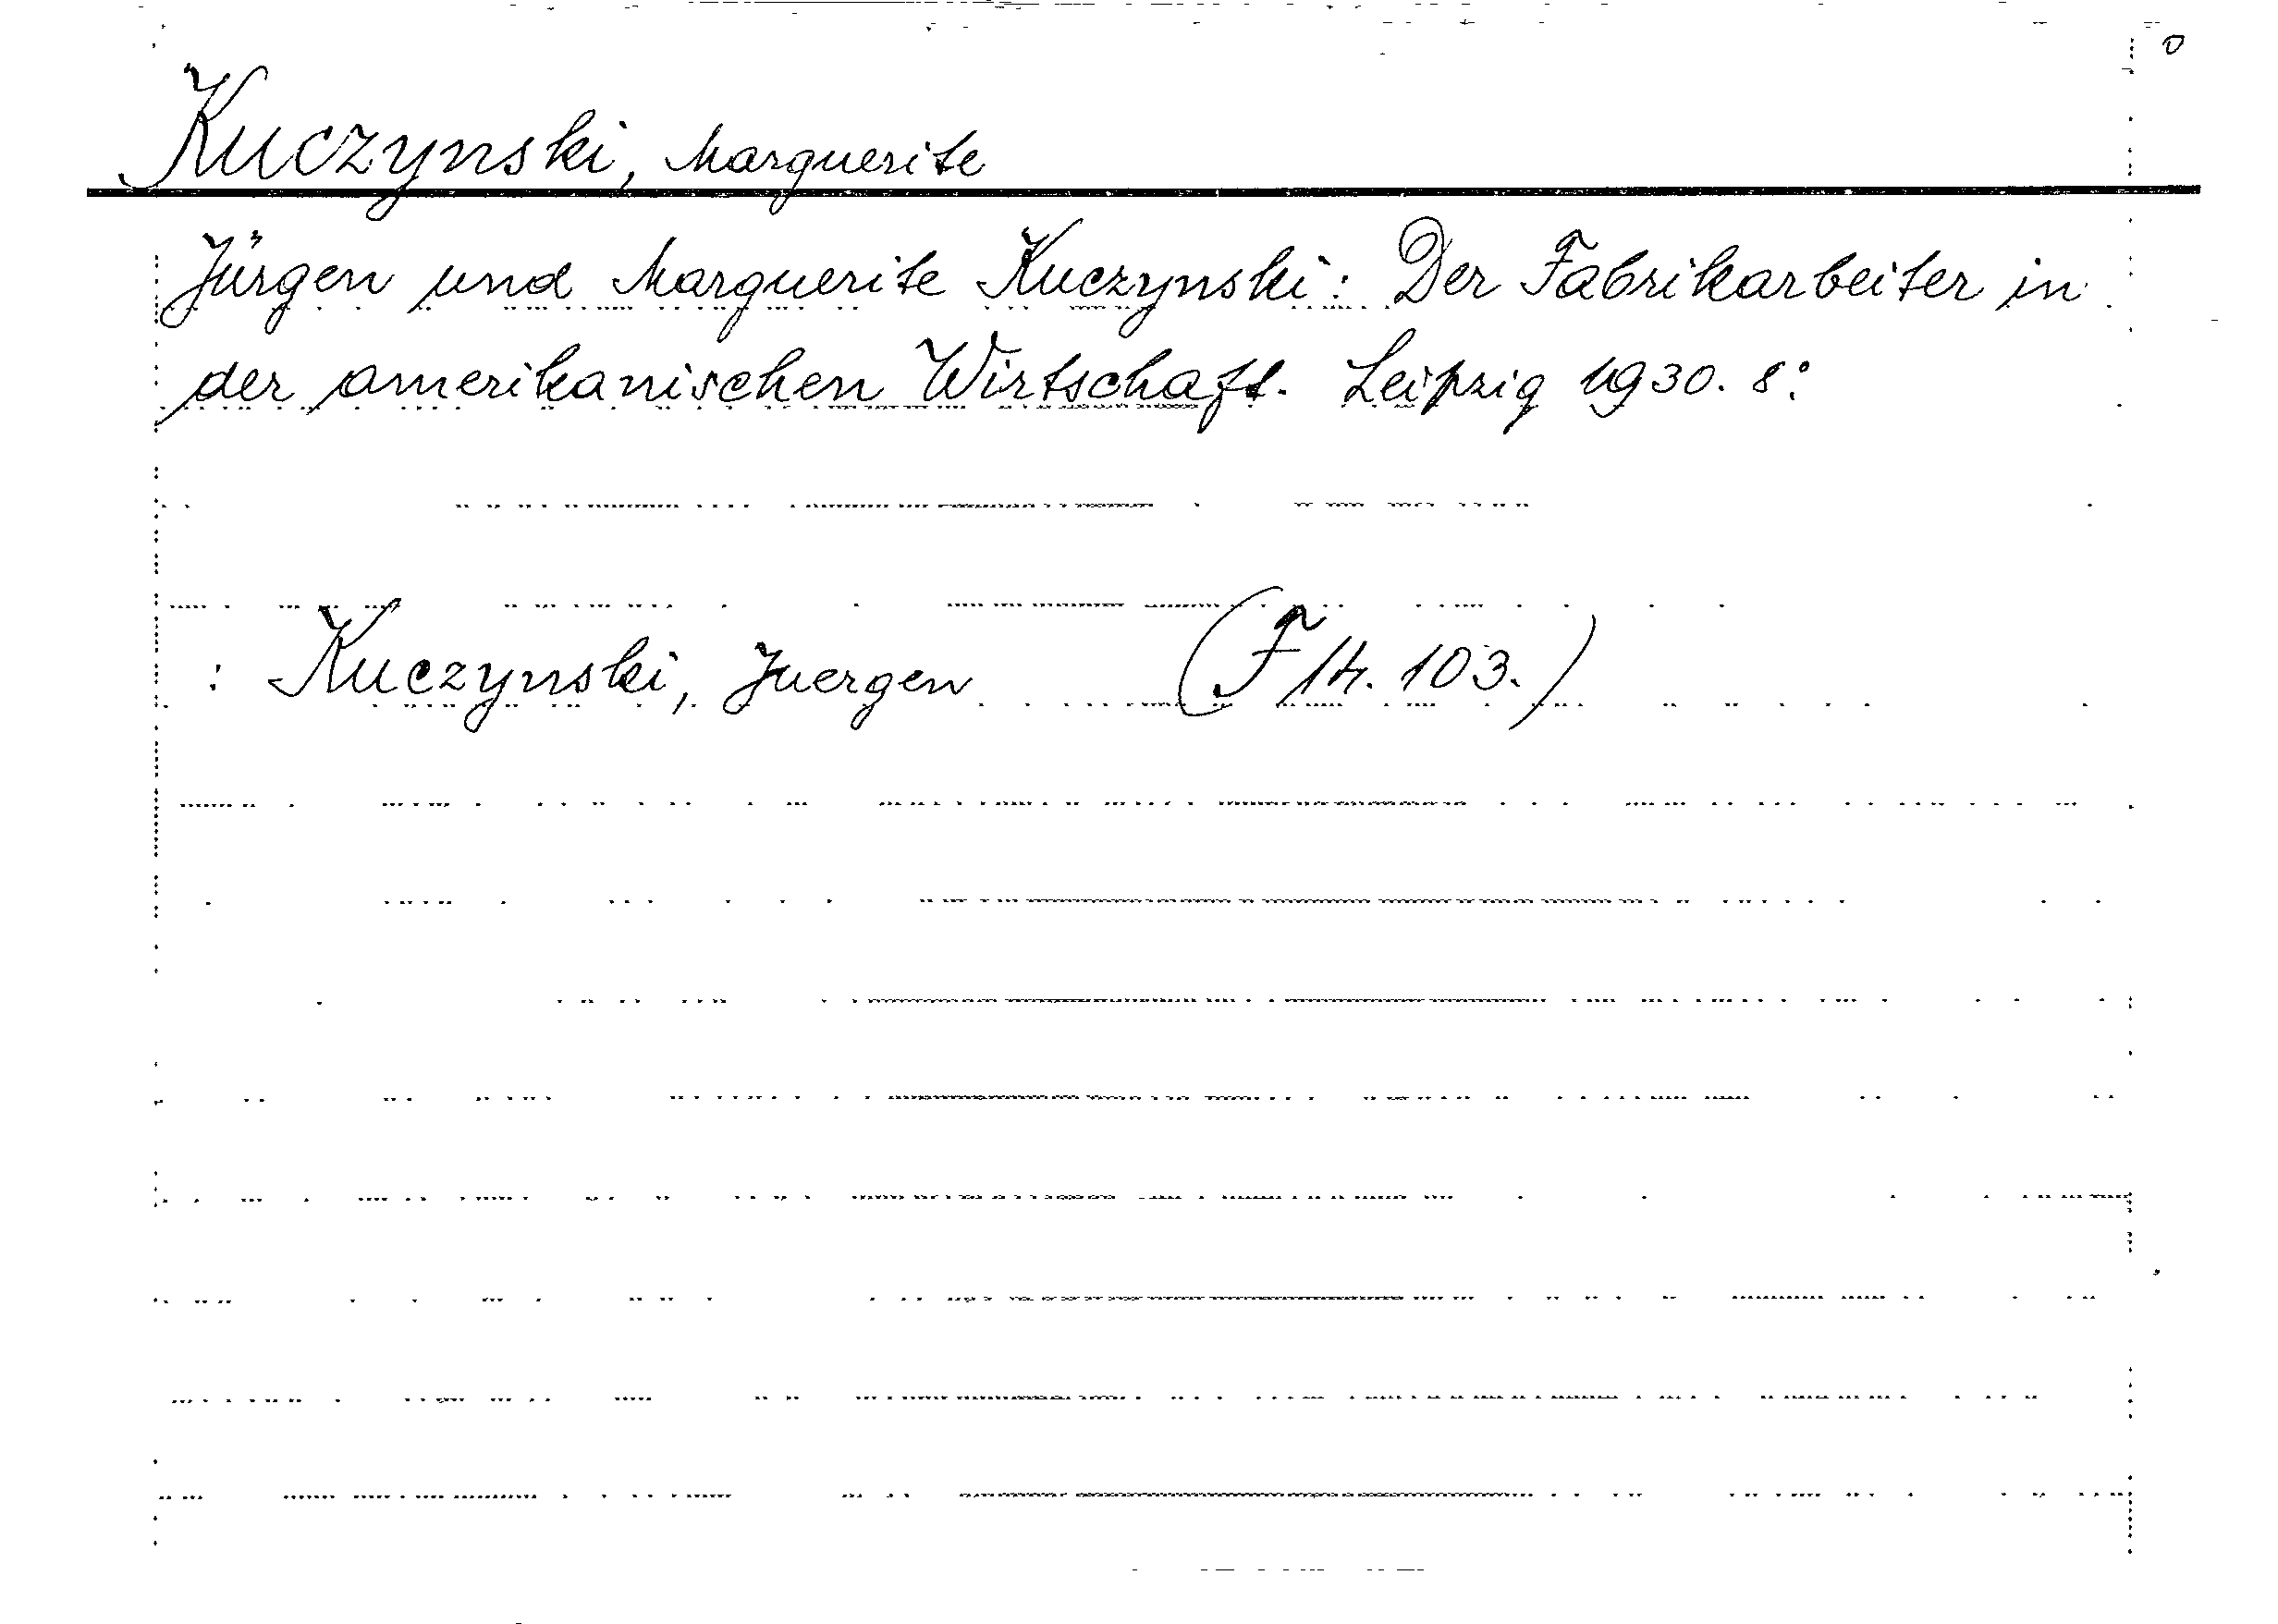 Kuczynski, Marguerite
Jürgen und Marguerite Kuczynski: Der Fabrikarbeiter in
der amerikanischen Wirtschaft. Leipzig 1930. 8°.
: Kuczynski, Juergen (F 14. 103.)